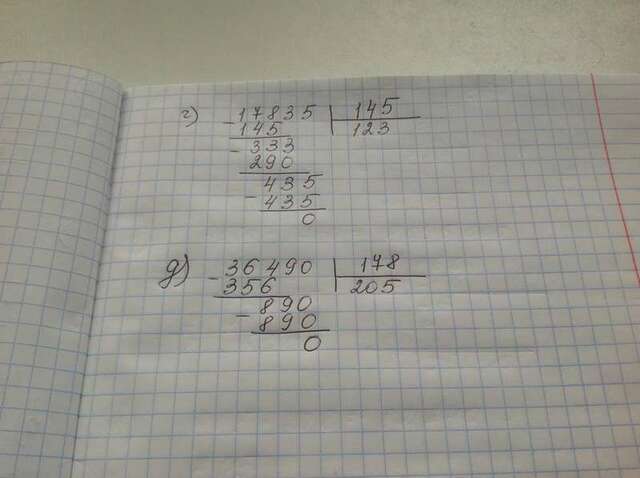 г) - 17835 | 145
145 123
- 333
290
435
- 435
0
д) - 36490 | 178
356 205
890
- 890
0